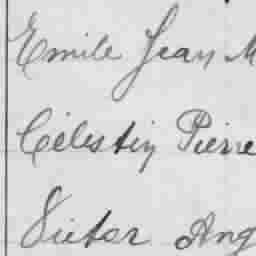 Emile Jean M
Célestin Pierre
Victor Ang